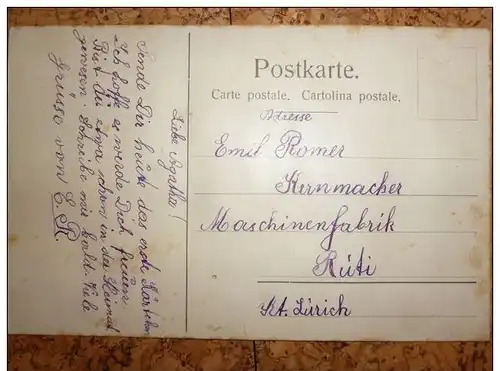 Postkarte.
Carte postale. Cartolina postale.
Adresse
Emil Romer
Kernmacher
Maschinenfabrik
Rüti
Kt. Zürich
Liebe Agatha!
Sende Dir heute das erste Kärtchen
Ich hoffe es werde Dich freuen
Bist du etwa schon in der Heimat
gewesen Schreibe mir bald. Viele
Grüsse von E. R.